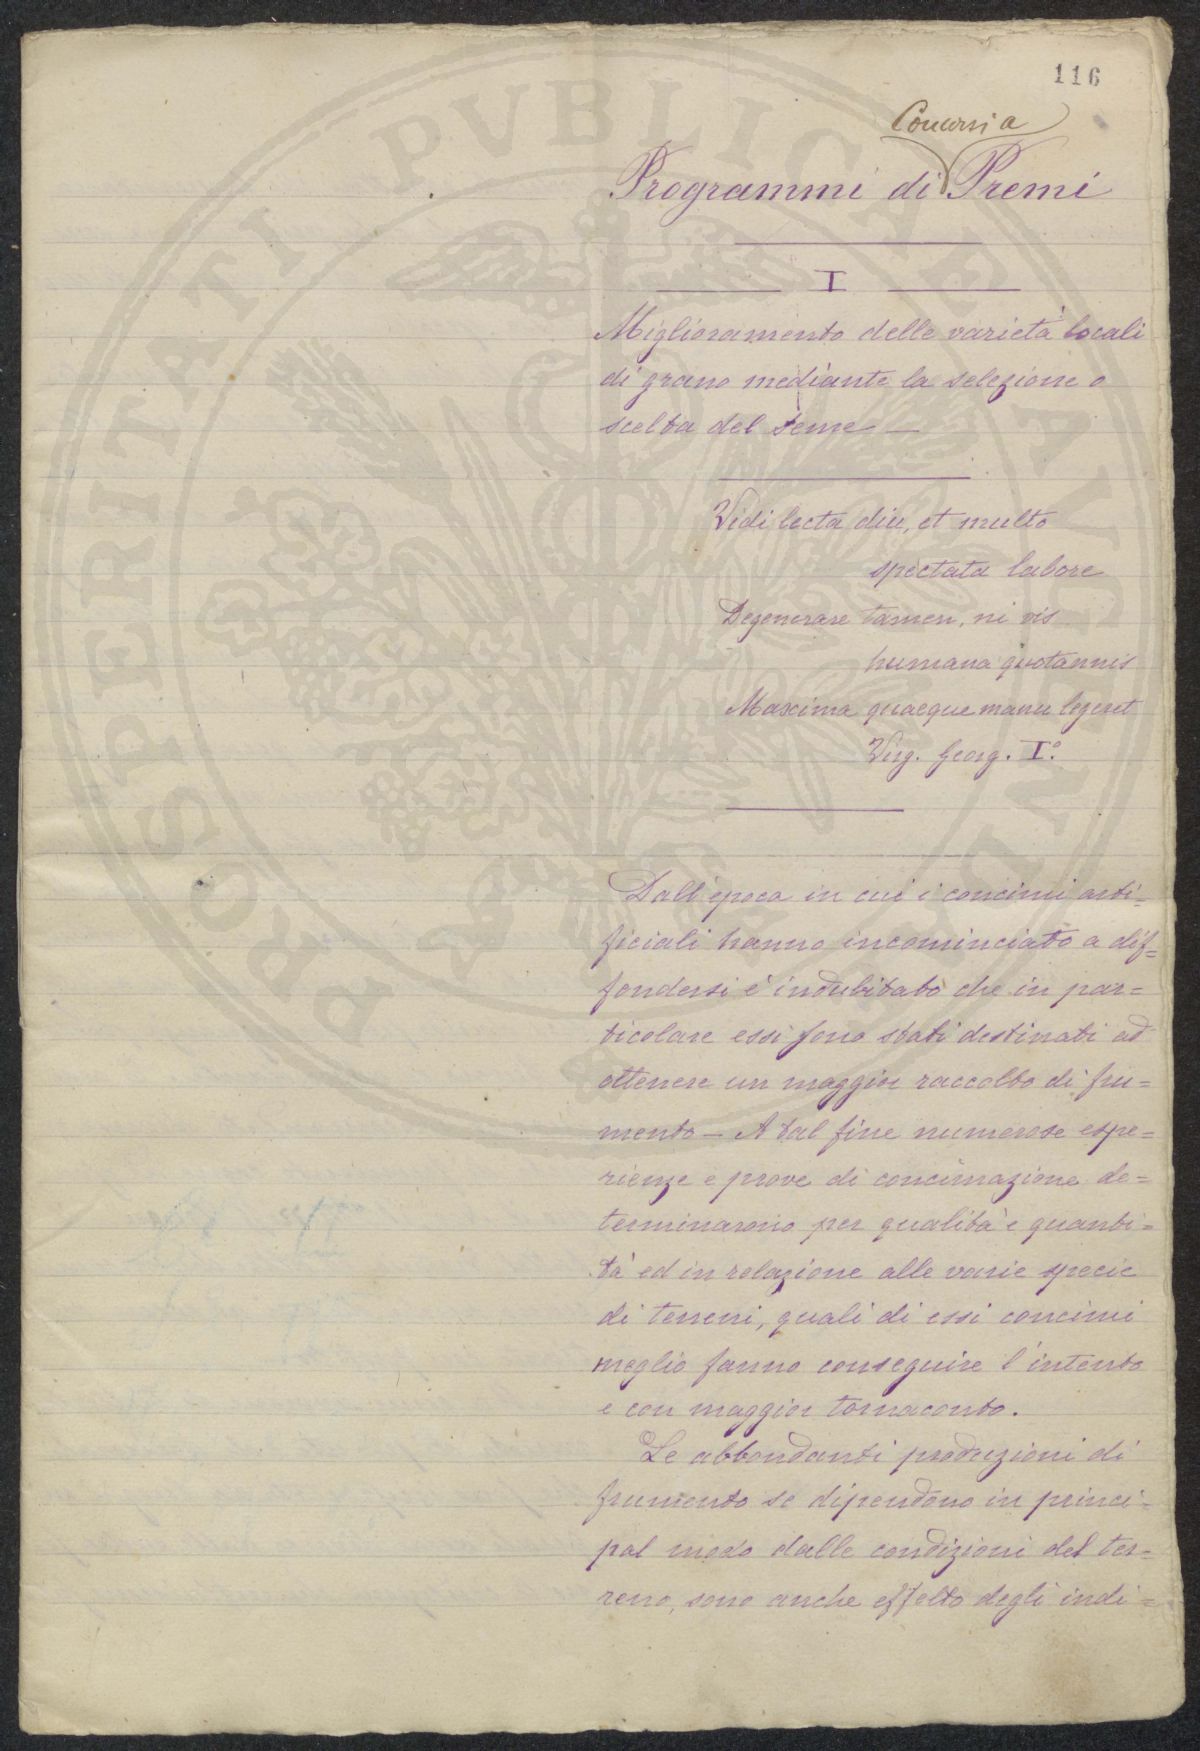 116
Concorsi a
Programmi di Premi
I
Miglioramento delle varietà locali
di grano mediante la selezione o
scelta del seme —
Vidi lecta diu, et multo
spectata labore
Degenerare tamen, ni vis
humana quotannis
Maxima quaeque manu legeret
Virg. Georg. I°.
Dall'epoca in cui i concimi arti=
ficiali hanno incominciato a dif=
fondersi é indubitato che in par=
ticolare essi sono stati destinati ad
ottenere un maggior raccolto di fru=
mento — A tal fine numerose espe=
rienze e prove di concimazione de=
terminarono per qualità e quanti=
tà ed in relazione alle varie specie
di terreni, quali di essi concimi
meglio fanno conseguire l'intento
e con maggior tornaconto.
Le abbondanti produzioni di
frumento se dipendono in princi=
pal modo dalle condizioni del ter=
reno, sono anche effetto degli indi=
PUBLICAE
PROSPERITATI